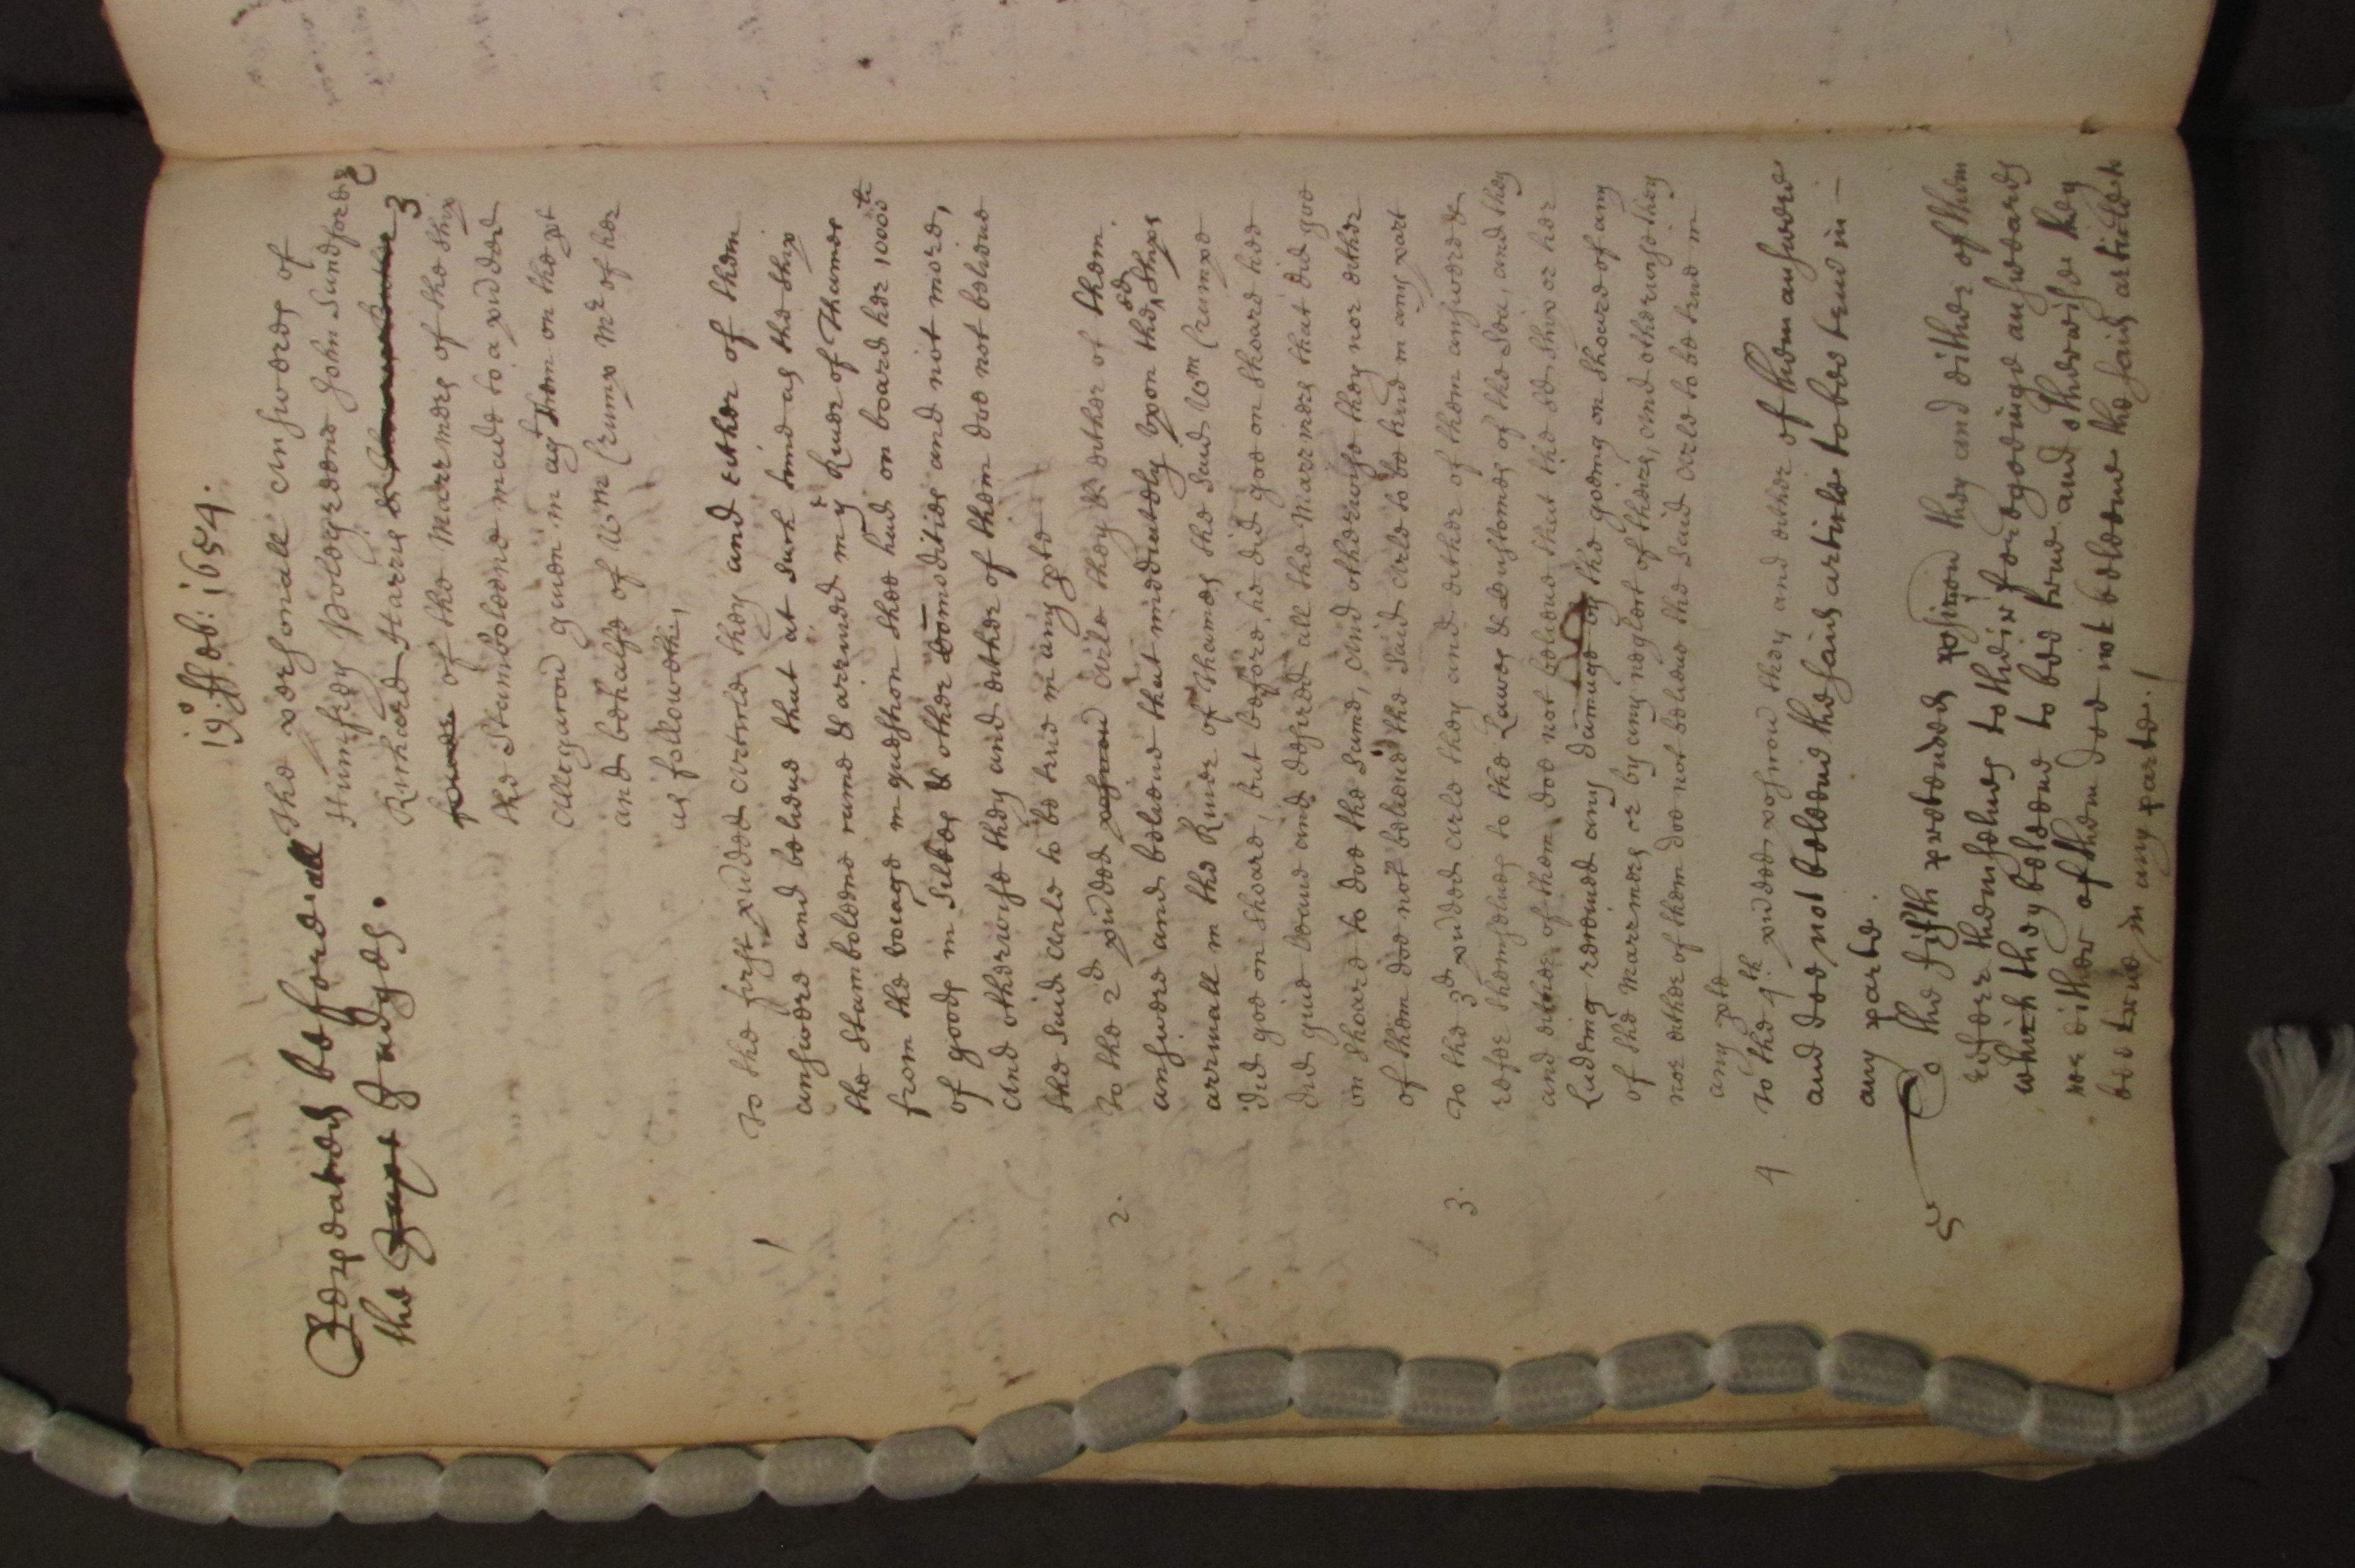 19.o ffeb: 1654.
Repeated before all
the Judges.
The personall answeres of
Humfrey Polegreene John Sandford &
Richard Harris & 3
fower of the Marriners of the shipp
the Stamboleene made to a pr̃ded
Allegaton given in agt them on the pt
and behalfe of Wm Crump Mr of her
as followeth,
1 To the first pr̃ded article they and either of them
answere and beleive that at such time as the shipp
the Stamboleene came & arrived in ye River of Thames
from the voiage in question shee had on board her 1000li
of goods in Silkes & other Com̃odities and not more,
And otherwise they and either of them doe not beleive
the said arle to be true in any pte
2. To the 2d pr̃ded arle they & either of them
answere and beleive that im̃ediately upon the sd shipps
arrivall in the River of Thames the said Wm Crumpe
did goe on shoare, but before he did goe on shoare hee
did give leave and desired all the Marriners that did goe
on shoare to doe the same, And otherwise they nor either
of them doe not beleive the said arle to be true in any part
3. To the 3d pr̃ded arle they and either of them answere &
refer themselves to the Lawes & Customes of the Sea, and they
and either of them doe not beleive that the sd shipp or her
Ladeing received any damage by the goeing on shoare of any
of the Marriners or by any neglect of theirs, and otherwise they
nor either of them doe not beleive the said arle to be true in
any pte
4 To the 4th pr̃ded posicon they and either of them answere
and doe not beleeve the said article to bee true in -
any parte.
5 To the fifth pretended position they and either of them
referr themselves to their foregoeinge answeares
which they beleeve to bee true and otherwise they
nor either of them doe not beleeve the said article to
bee true in any parte./